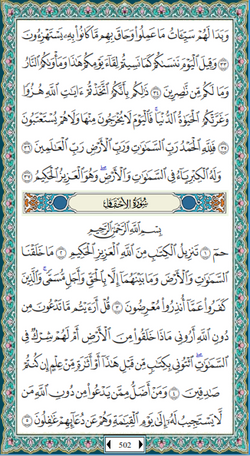 وَبَدَا لَهُمْ سَيِّئَاتُ مَا عَمِلُوا۟ وَحَاقَ بِهِم مَّا كَانُوا۟ بِهِۦ يَسْتَهْزِءُونَ
٣٣ وَقِيلَ ٱلْيَوْمَ نَنسَىٰكُمْ كَمَا نَسِيتُمْ لِقَآءَ يَوْمِكُمْ هَٰذَا وَمَأْوَىٰكُمُ ٱلنَّارُ
وَمَا لَكُم مِّن نَّٰصِرِينَ ٣٤ ذَٰلِكُم بِأَنَّكُمُ ٱتَّخَذْتُمْ ءَايَٰتِ ٱللَّهِ هُزُوًا
وَغَرَّتْكُمُ ٱلْحَيَوٰةُ ٱلدُّنْيَا ۚ فَٱلْيَوْمَ لَا يُخْرَجُونَ مِنْهَا وَلَا هُمْ يُسْتَعْتَبُونَ
٣٥ فَلِلَّهِ ٱلْحَمْدُ رَبِّ ٱلسَّمَٰوَٰتِ وَرَبِّ ٱلْأَرْضِ رَبِّ ٱلْعَٰلَمِينَ ٣٦
وَلَهُ ٱلْكِبْرِيَآءُ فِى ٱلسَّمَٰوَٰتِ وَٱلْأَرْضِ ۖ وَهُوَ ٱلْعَزِيزُ ٱلْحَكِيمُ ٣٧
سُورَةُ الأَحْقَافِ
بِسْمِ ٱللَّهِ ٱلرَّحْمَٰنِ ٱلرَّحِيمِ
حمٓ ١ تَنزِيلُ ٱلْكِتَٰبِ مِنَ ٱللَّهِ ٱلْعَزِيزِ ٱلْحَكِيمِ ٢ مَا خَلَقْنَا
ٱلسَّمَٰوَٰتِ وَٱلْأَرْضَ وَمَا بَيْنَهُمَآ إِلَّا بِٱلْحَقِّ وَأَجَلٍ مُّسَمًّى ۚ وَٱلَّذِينَ
كَفَرُوا۟ عَمَّآ أُنذِرُوا۟ مُعْرِضُونَ ٣ قُلْ أَرَءَيْتُم مَّا تَدْعُونَ مِن
دُونِ ٱللَّهِ أَرُونِى مَاذَا خَلَقُوا۟ مِنَ ٱلْأَرْضِ أَمْ لَهُمْ شِرْكٌ فِى
ٱلسَّمَٰوَٰتِ ۖ ٱئْتُونِى بِكِتَٰبٍ مِّن قَبْلِ هَٰذَآ أَوْ أَثَٰرَةٍ مِّنْ عِلْمٍ إِن كُنتُمْ
صَٰدِقِينَ ٤ وَمَنْ أَضَلُّ مِمَّن يَدْعُوا۟ مِن دُونِ ٱللَّهِ مَن
لَّا يَسْتَجِيبُ لَهُۥٓ إِلَىٰ يَوْمِ ٱلْقِيَٰمَةِ وَهُمْ عَن دُعَآئِهِمْ غَٰفِلُونَ ٥
502